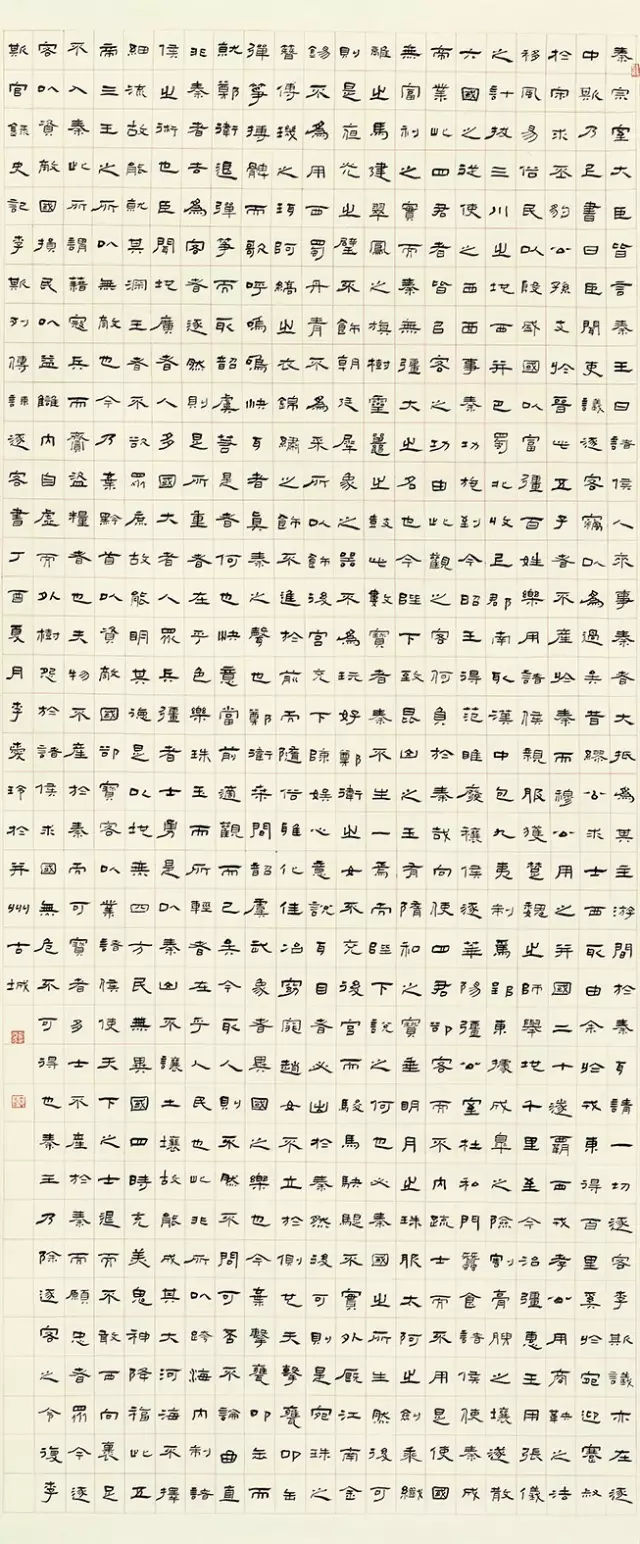 秦宗室大臣皆言秦王曰諸侯人來事秦者大抵為其主游間於秦耳請一切逐客李斯議亦在逐
中斯乃上書曰臣聞吏議逐客竊以為過矣昔繆公求士西取由余於戎東得百里奚於宛迎蹇叔
於宋求丕豹公孫支於晉此五子者不產於秦而穆公用之并國二十遂霸西戎孝公用商鞅之法
移風易俗民以殷盛國以富彊百姓樂用諸侯親服獲楚魏之師舉地千里至今治彊惠王用張儀
之計拔三川之地西并巴蜀北收上郡南取漢中包九夷制鄢郢東據成皋之險割膏腴之壤遂散
六國之從使之西面事秦功施到今昭王得范雎廢穰侯逐華陽彊公室杜私門蠶食諸侯使秦成
帝業此四君者皆以客之功由此觀之客何負於秦哉向使四君卻客而不內疏士而不用是使國
無富利之實而秦無彊大之名也今陛下致昆山之玉有隨和之寶垂明月之珠服太阿之劍乘纖
離之馬建翠鳳之旗樹靈鼉之鼓此數寶者秦不生一焉而陛下說之何也必秦國之所生然後可
則是夜光之璧不飾朝廷犀象之器不為玩好鄭衛之女不充後宮而駿馬駃騠不實外廄江南金
錫不為用西蜀丹青不為采所以飾後宮充下陳娛心意說耳目者必出於秦然後可則是宛珠之
簪傅璣之珥阿縞之衣錦繡之飾不進於前而隨俗雅化佳冶窈窕趙女不立於側也夫擊甕叩缶
彈箏搏髀而歌呼嗚嗚快耳者真秦之聲也鄭衛桑間韶虞武象者異國之樂也今棄擊甕叩缶而
就鄭衛退彈箏而取韶虞若是者何也快意當前適觀而已矣今取人則不然不問可否不論曲直
非秦者去為客者逐然則是所重者在乎色樂珠玉而所輕者在乎人民也此非所以跨海內制諸
侯之術也臣聞地廣者人多國大者人眾兵彊者士勇是以泰山不讓土壤故能成其大河海不擇
細流故能就其深王者不卻眾庶故能明其德是以地無四方民無異國四時充美鬼神降福此五
帝三王之所以無敵也今乃棄黔首以資敵國卻賓客以業諸侯使天下之士退而不敢西向裹足
不入秦此所謂藉寇兵而齎盜糧者也夫物不產於秦而可寶者多士不產於秦而願忠者眾今逐
客以資敵國損民以益讎內自虛而外樹怨於諸侯求國無危不可得也秦王乃除逐客之令復李
斯官錄史記李斯列傳諫逐客書丁酉夏月李愛玲於并州古城